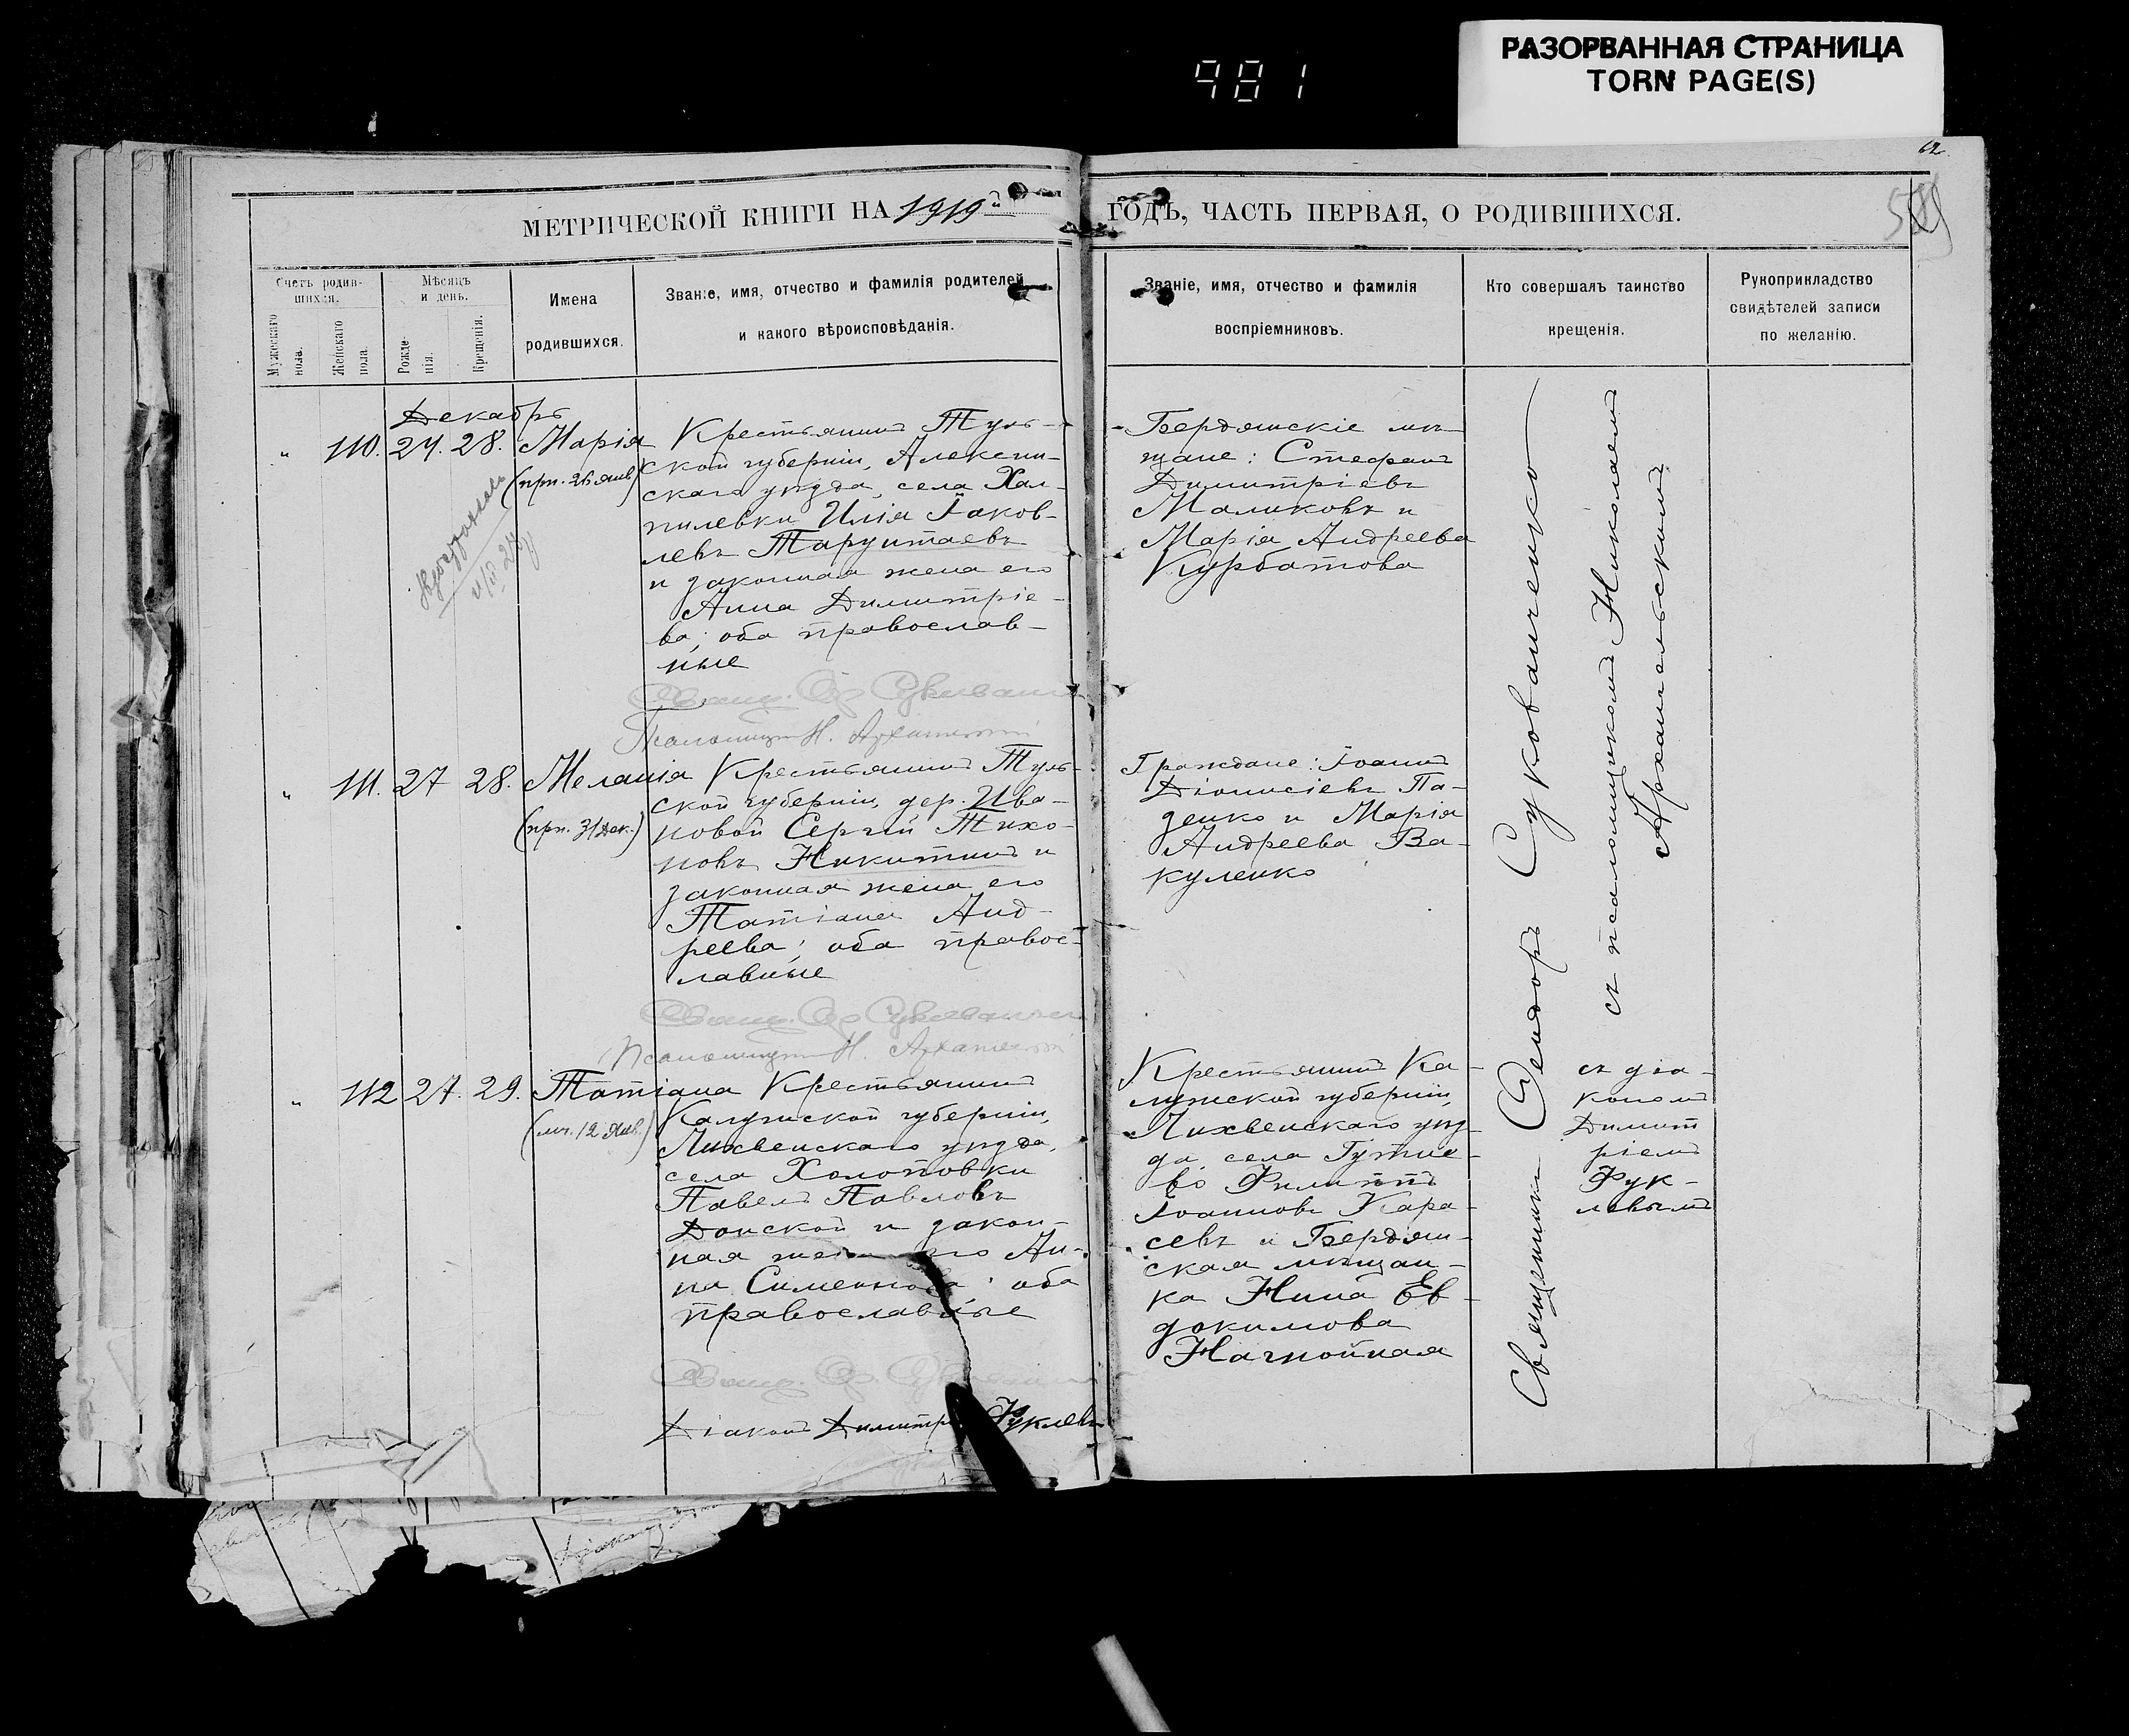 РАЗОРВАННАЯ СТРАНИЦА
TORN PAGE(S)
981
62
МЕТРИЧЕСКОЙ КНИГИ НА 1919й ГОДЪ, ЧАСТЬ ПЕРВАЯ, О РОДИВШИХСЯ.
Счетъ родив-
шихся.
Мужескаго
пола.
Женскаго
пола.
Мѣсяцъ
и день.
Рожде-
нія.
Крещенія.
Имена
родившихся.
Званіе, имя, отчество и фамилія родителей
и какого вѣроисповѣданія.
Званіе, имя, отчество и фамилія
воспріемниковъ.
Кто совершалъ таинство
крещенія.
Рукоприкладство
свидѣтелей записи
по желанію.
Декабрь
" 110. 24. 28. Марія
(прп. 26 янв.)
Крестьянинъ Туль-
ской губерніи, Алексин-
скаго уѣзда, села Хал-
пилевки Илія Іаков-
левъ Тарунтаевъ
и законная жена его
Анна Димитріе-
ва; оба православ-
ные
Бердянскіе мѣ-
щане: Стефанъ
Димитріевъ
Маликовъ и
Марія Андреева
Курбатова
Псаломщикъ Н. Архангельскій
" 111. 27 28. Меланія
(прп. 31 Дек.)
Крестьянинъ Туль-
ской губерніи, дер. Ива-
новой Сергій Тихо-
новъ Никитинъ и
законная жена его
Татіана Анд-
реева; оба правос-
лавные
Граждане: Іоаннъ
Діонисіевъ Па-
ценко и Марія
Андреева Ва-
куленко
Псаломщикъ Н. Архангельскій
" 112 27. 29. Татіана
(мч. 12 Янв.)
Крестьянинъ
Калужской губерніи,
Лихвенскаго уѣзда,
села Холоповки
Павелъ Павловъ
Донской и закон-
ная жена его Ан-
на Симеонова; оба
православные
Крестьянинъ Ка-
лужской губерніи,
Лихвенскаго уѣз-
да, села
Филиппъ
Іоанновъ Кара-
севъ и Бердян-
ская мѣщан-
ка Нина Ев-
докимова
Нагнойная
Діаконъ Димитрій Фуклевъ
Священникъ Ѳеодоръ Сукованченко
съ псаломщикомъ Николаемъ
Архангельскимъ
съ діа-
кономъ
Димит
ріемъ
Фук-
левымъ